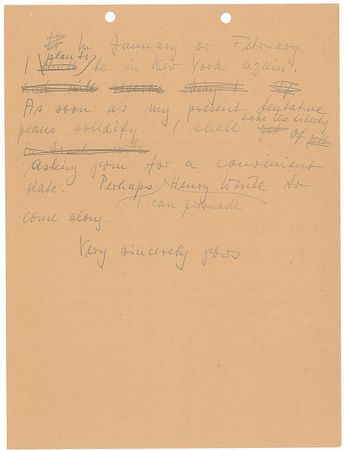 In January or February
I plan to be in New York again.
As soon as my present tentative
plans solidify I shall take the liberty of
asking you for a convenient
date. Perhaps I can persuade Henry White to
come along.
Very sincerely yours